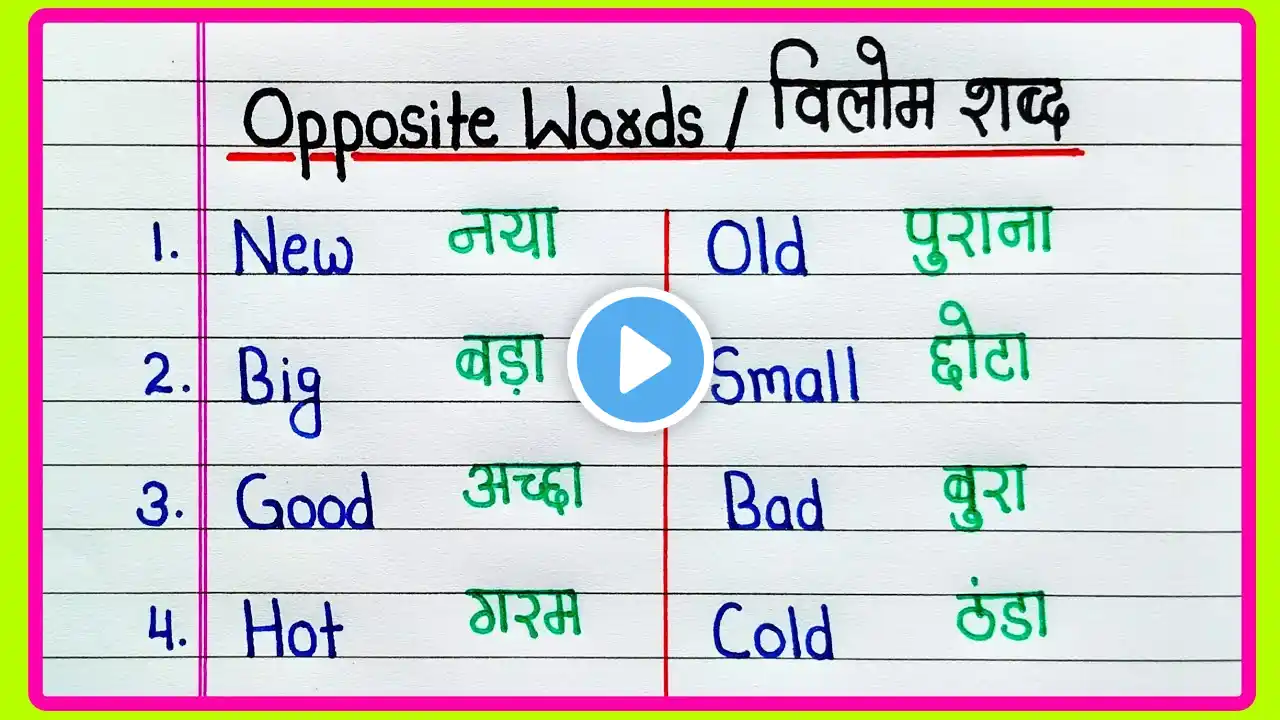 Opposite Words / विलोम शब्द
1. New नया Old पुराना
2. Big बड़ा Small छोटा
3. Good अच्छा Bad बुरा
4. Hot गरम Cold ठंडा